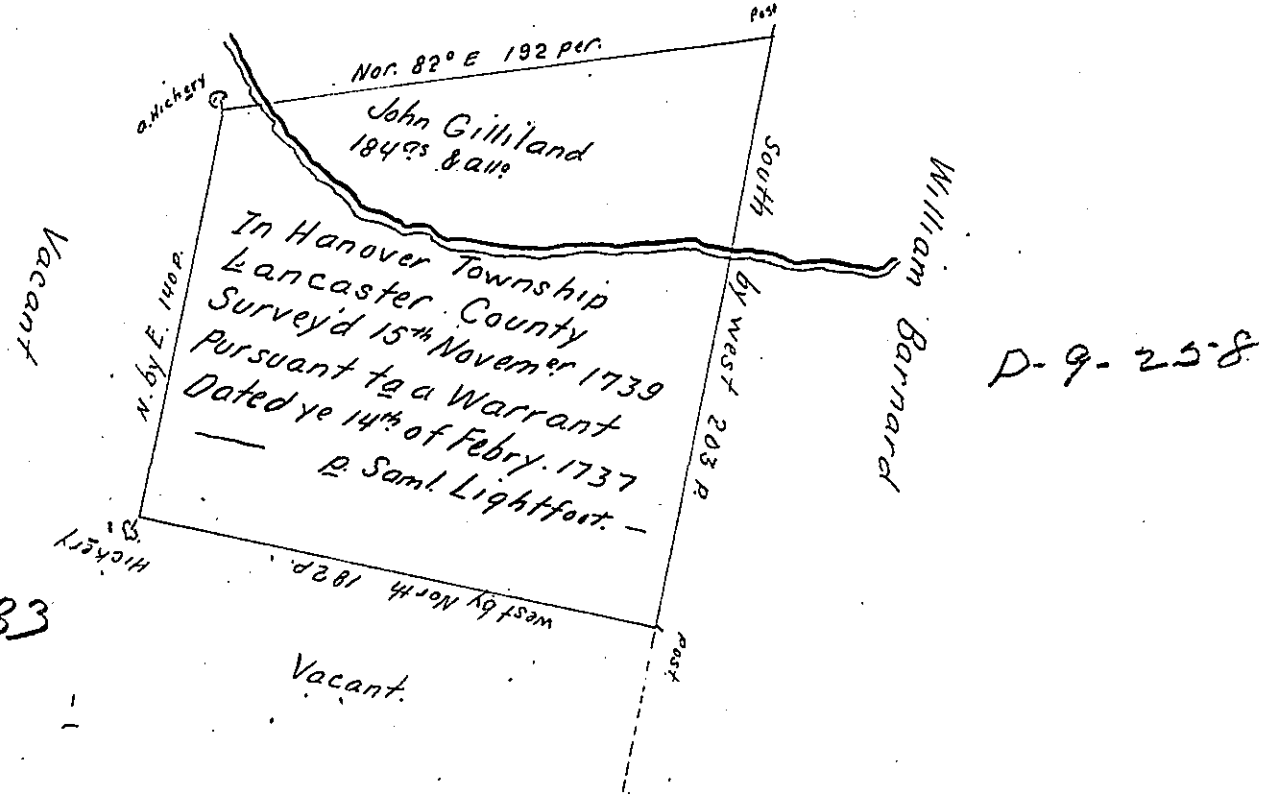 Post
Nor. 82° E 192 per.
a. Hickery
John Gilliland
184 as & allo
South by west 203 p.
William Barnard
Vacant
N. by E. 140 p.
In Hanover Township
Lancaster County
Survey'd 15th Novemer 1739
Pursuant to a Warrant
Dated ye 14th of Febry. 1737
p. Saml. Lightfoot. —
D-9-258
Hickery
west by North 182 p.
Post
Vacant.